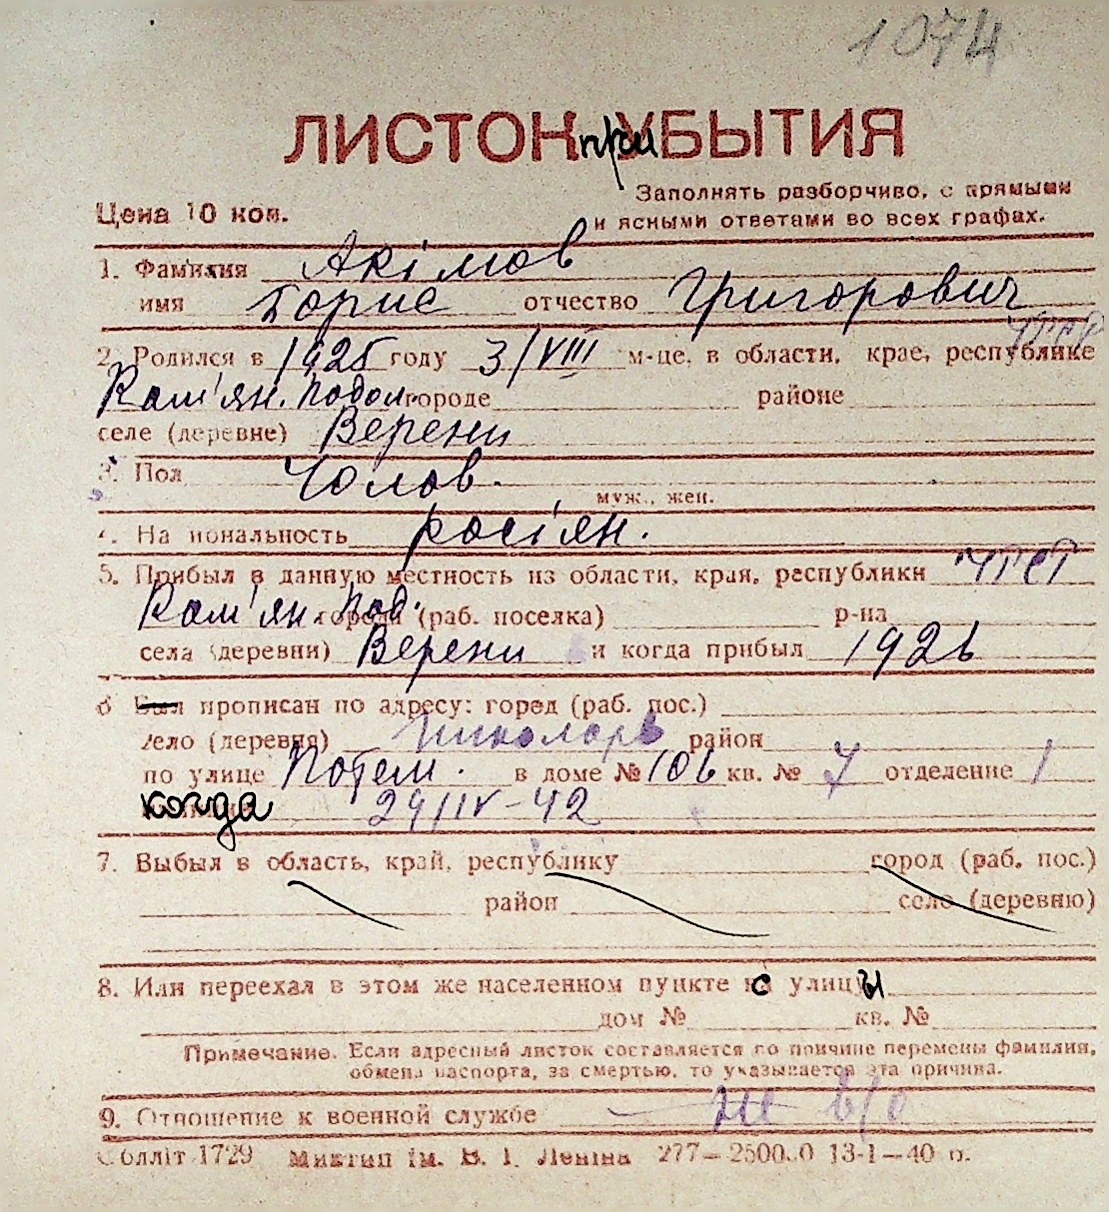 1074
ЛИСТОК при УБЫТИЯ
Заполнять разборчиво, с прямыми
Цена 10 коп.
и ясными ответами во всех графах.
1. Фамилия Акімов
имя Борис отчество Григорович
УРСР
2. Родился в 1925 году 3/VIII м-це, в области, крае, республике
Кам'ян. Подол. городе районе
селе (деревне) Верени
3. Пол Чолов.
муж., жен.
4. Национальность росіян.
5. Прибыл в данную местность из области, края, республики УРСР
Кам'ян. Под. города (раб. поселка) р-на
села (деревни) Верени и когда прибыл 1926
6 Был прописан по адресу: город (раб. пос.)
село (деревня) район
по улице Потем. в доме № 106 кв. № 7 отделение 1
когда 24/IV-42
7. Выбыл в область, край, республику город (раб. пос.)
район село (деревню)
8. Или переехал в этом же населенном пункте с улицы
дом № кв. №
Примечание. Если адресный листок составляется по причине перемены фамилии,
обмена паспорта, за смертью, то указывается эта причина.
9. Отношение к военной службе не в/о
Облліт 1729 Миктип ім. В. І. Леніна 277—25000 13-1—40 р.